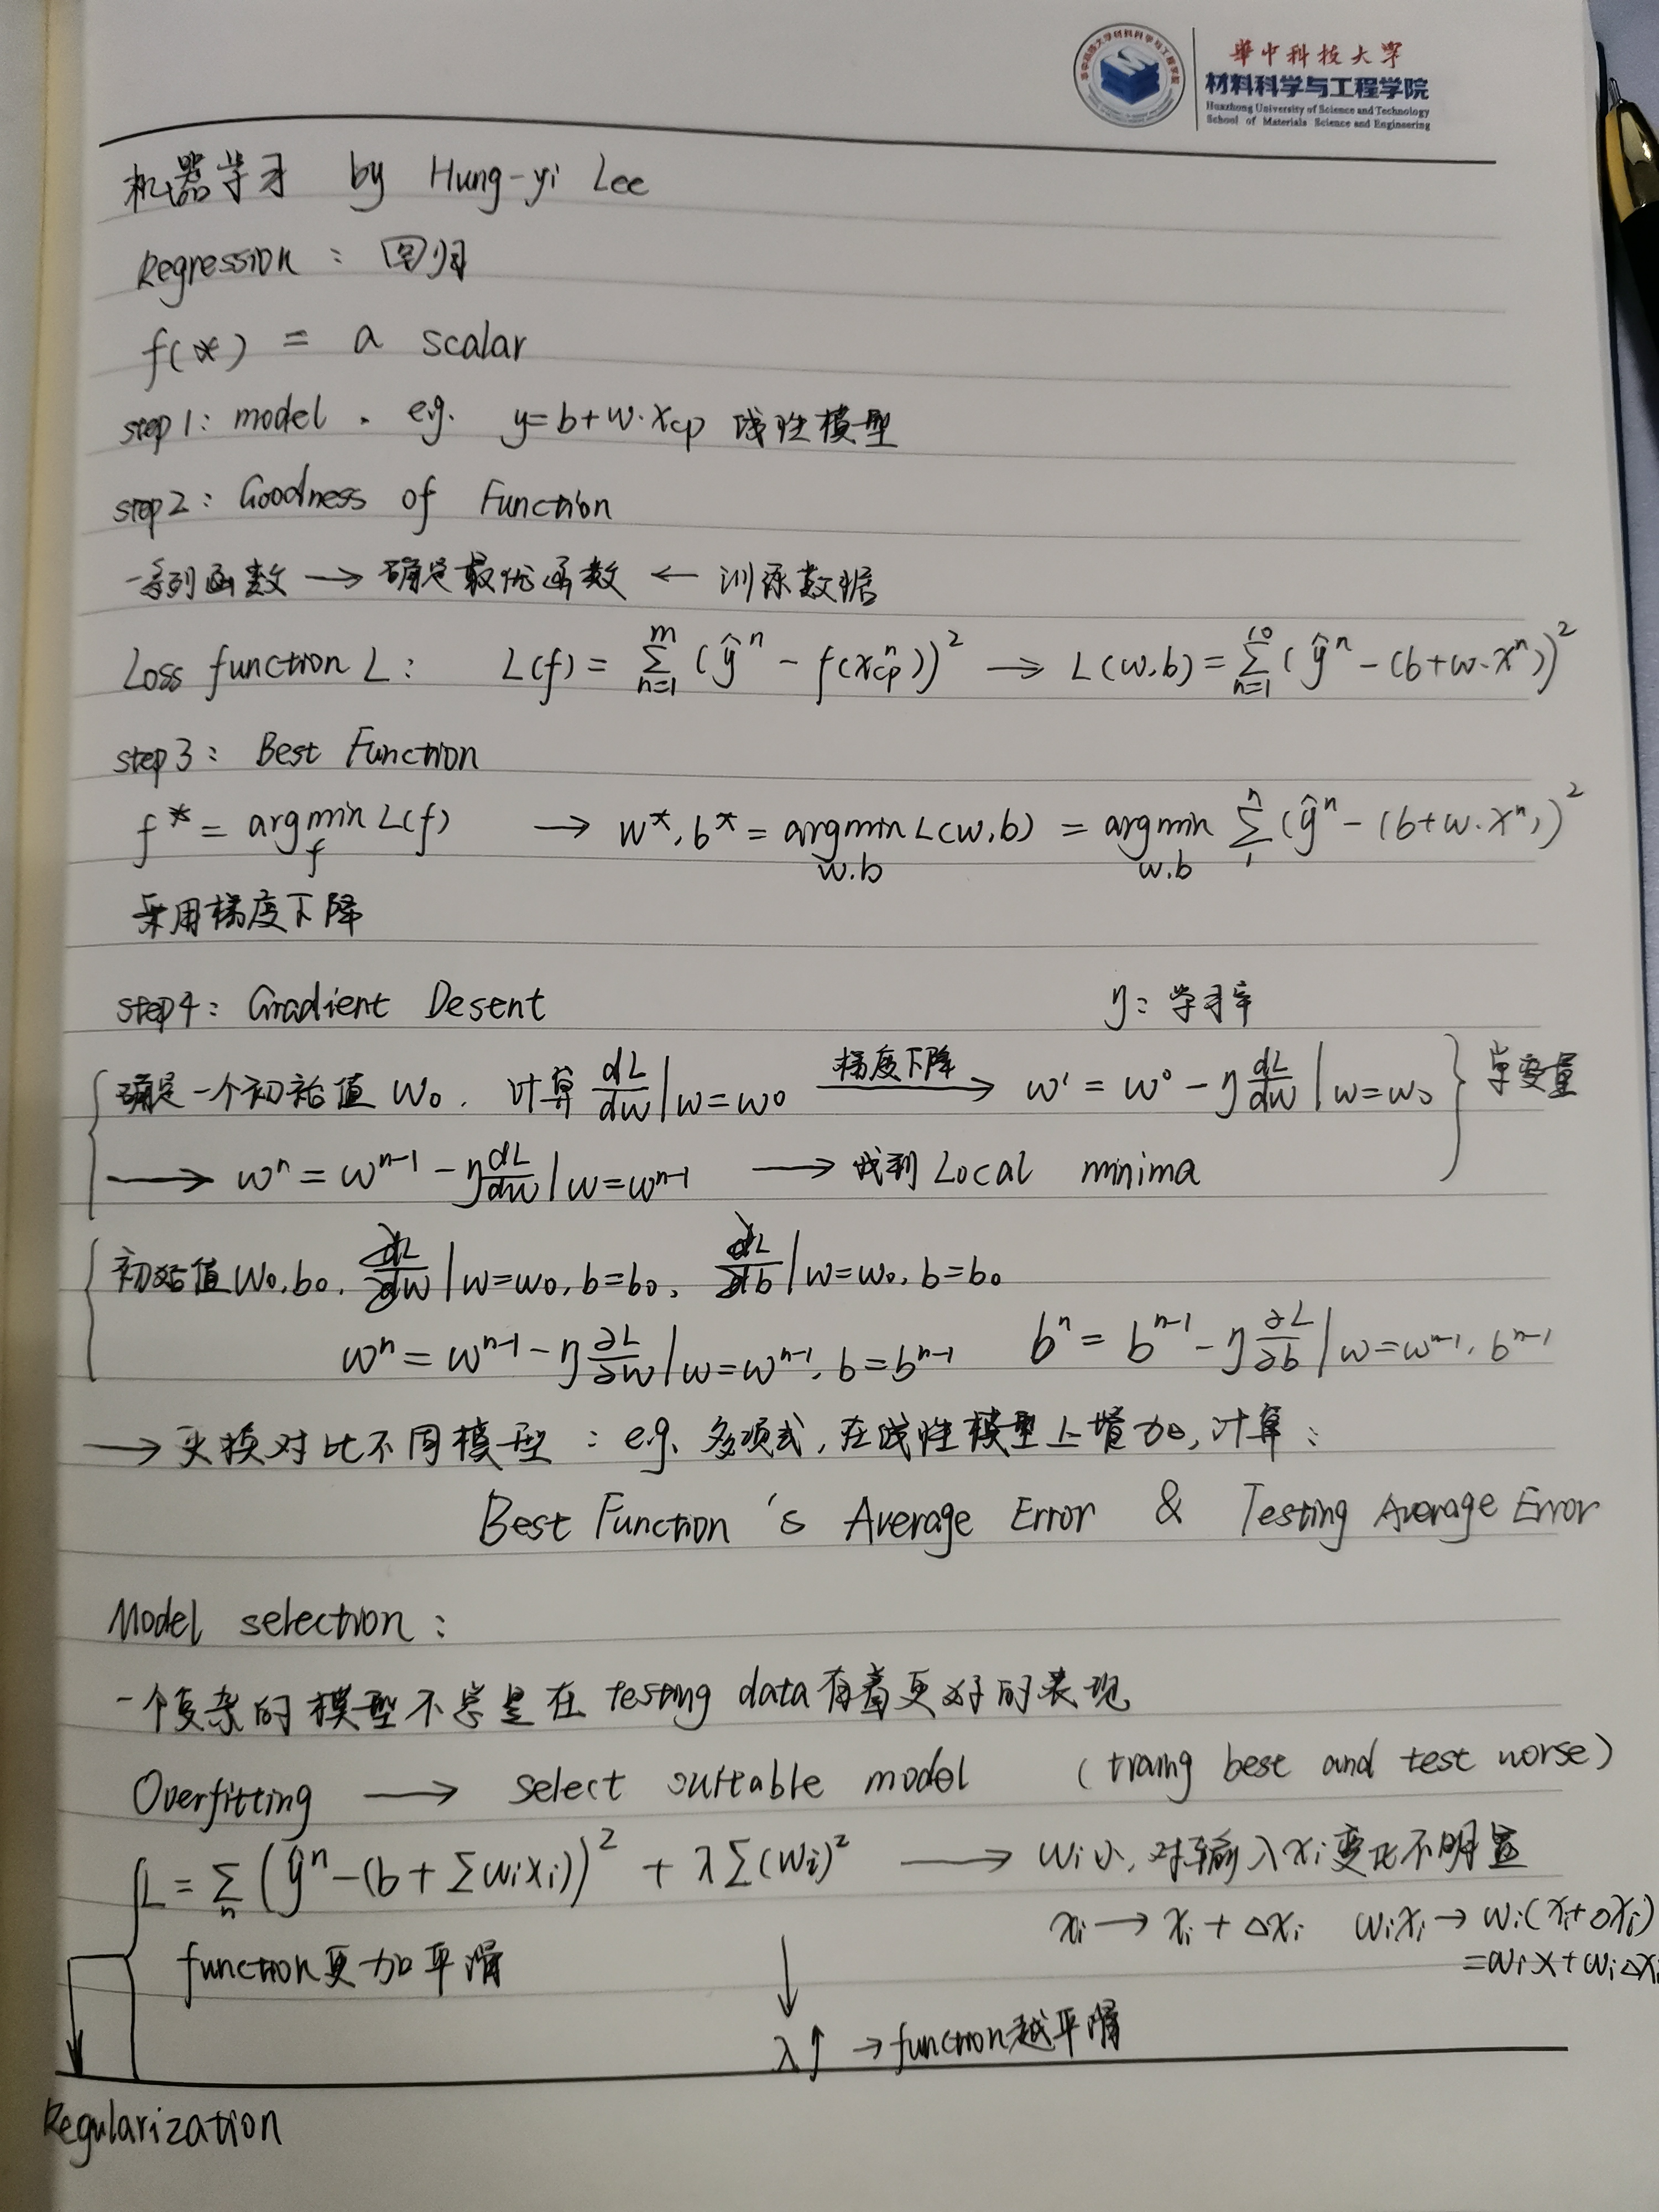 華中科技大学
材料科学与工程学院
Huazhong University of Science and Technology
School of Materials Science and Engineering
机器学习 by Hung-yi Lee
Regression : 回归
f(*) = a scalar
step1: model . eg. y=b+w·x_cp 线性模型
step2: Goodness of Function
一系列函数 → 确定最优函数 ← 训练数据
Loss function L: L(f) = ∑_{n=1}^{m} (ŷ^n − f(x_cp^n))² → L(w,b) = ∑_{n=1}^{10} (ŷ^n − (b+w·x^n))²
step3: Best Function
f* = arg min_f L(f) → w*, b* = arg min_{w,b} L(w,b) = arg min_{w,b} ∑_1^n (ŷ^n − (b+w·x^n))²
采用梯度下降
step4: Gradient Desent η: 学习率
确定一个初始值 w₀, 计算 dL/dw | w=w⁰ 梯度下降→ w¹ = w⁰ − η dL/dw | w=w₀ } 单变量
→ w^n = w^{n-1} − η dL/dw | w=w^{n-1} → 找到 Local minima
初始值 w₀, b₀, ∂L/∂w | w=w₀, b=b₀, ∂L/∂b | w=w₀, b=b₀
w^n = w^{n-1} − η ∂L/∂w | w=w^{n-1}, b=b^{n-1} b^n = b^{n-1} − η ∂L/∂b | w=w^{n-1}, b^{n-1}
→ 换对比不同模型 : eg. 多项式, 在线性模型上增加, 计算:
Best Function 's Average Error & Testing Average Error
Model selection:
一个复杂的模型不总是在 testing data 有着更好的表现
Overfitting → select suitable model (traing best and test worse)
L = ∑_n (ŷ^n − (b + ∑w_i x_i))² + λ∑(w_i)² → w_i 小, 对输入 x_i 变化不明显
x_i → x_i + Δx_i w_i x_i → w_i(x_i+Δx_i)
function 更加平滑 = w_i x + w_i Δx_i
λ↑ → function 越平滑
Regularization